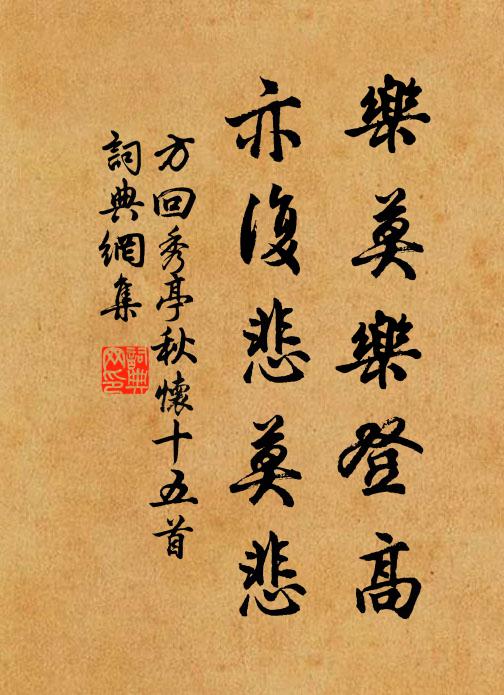 樂莫樂登高
亦復悲莫悲
方回秀亭秋懷十五首
詞典網集
詞典网印